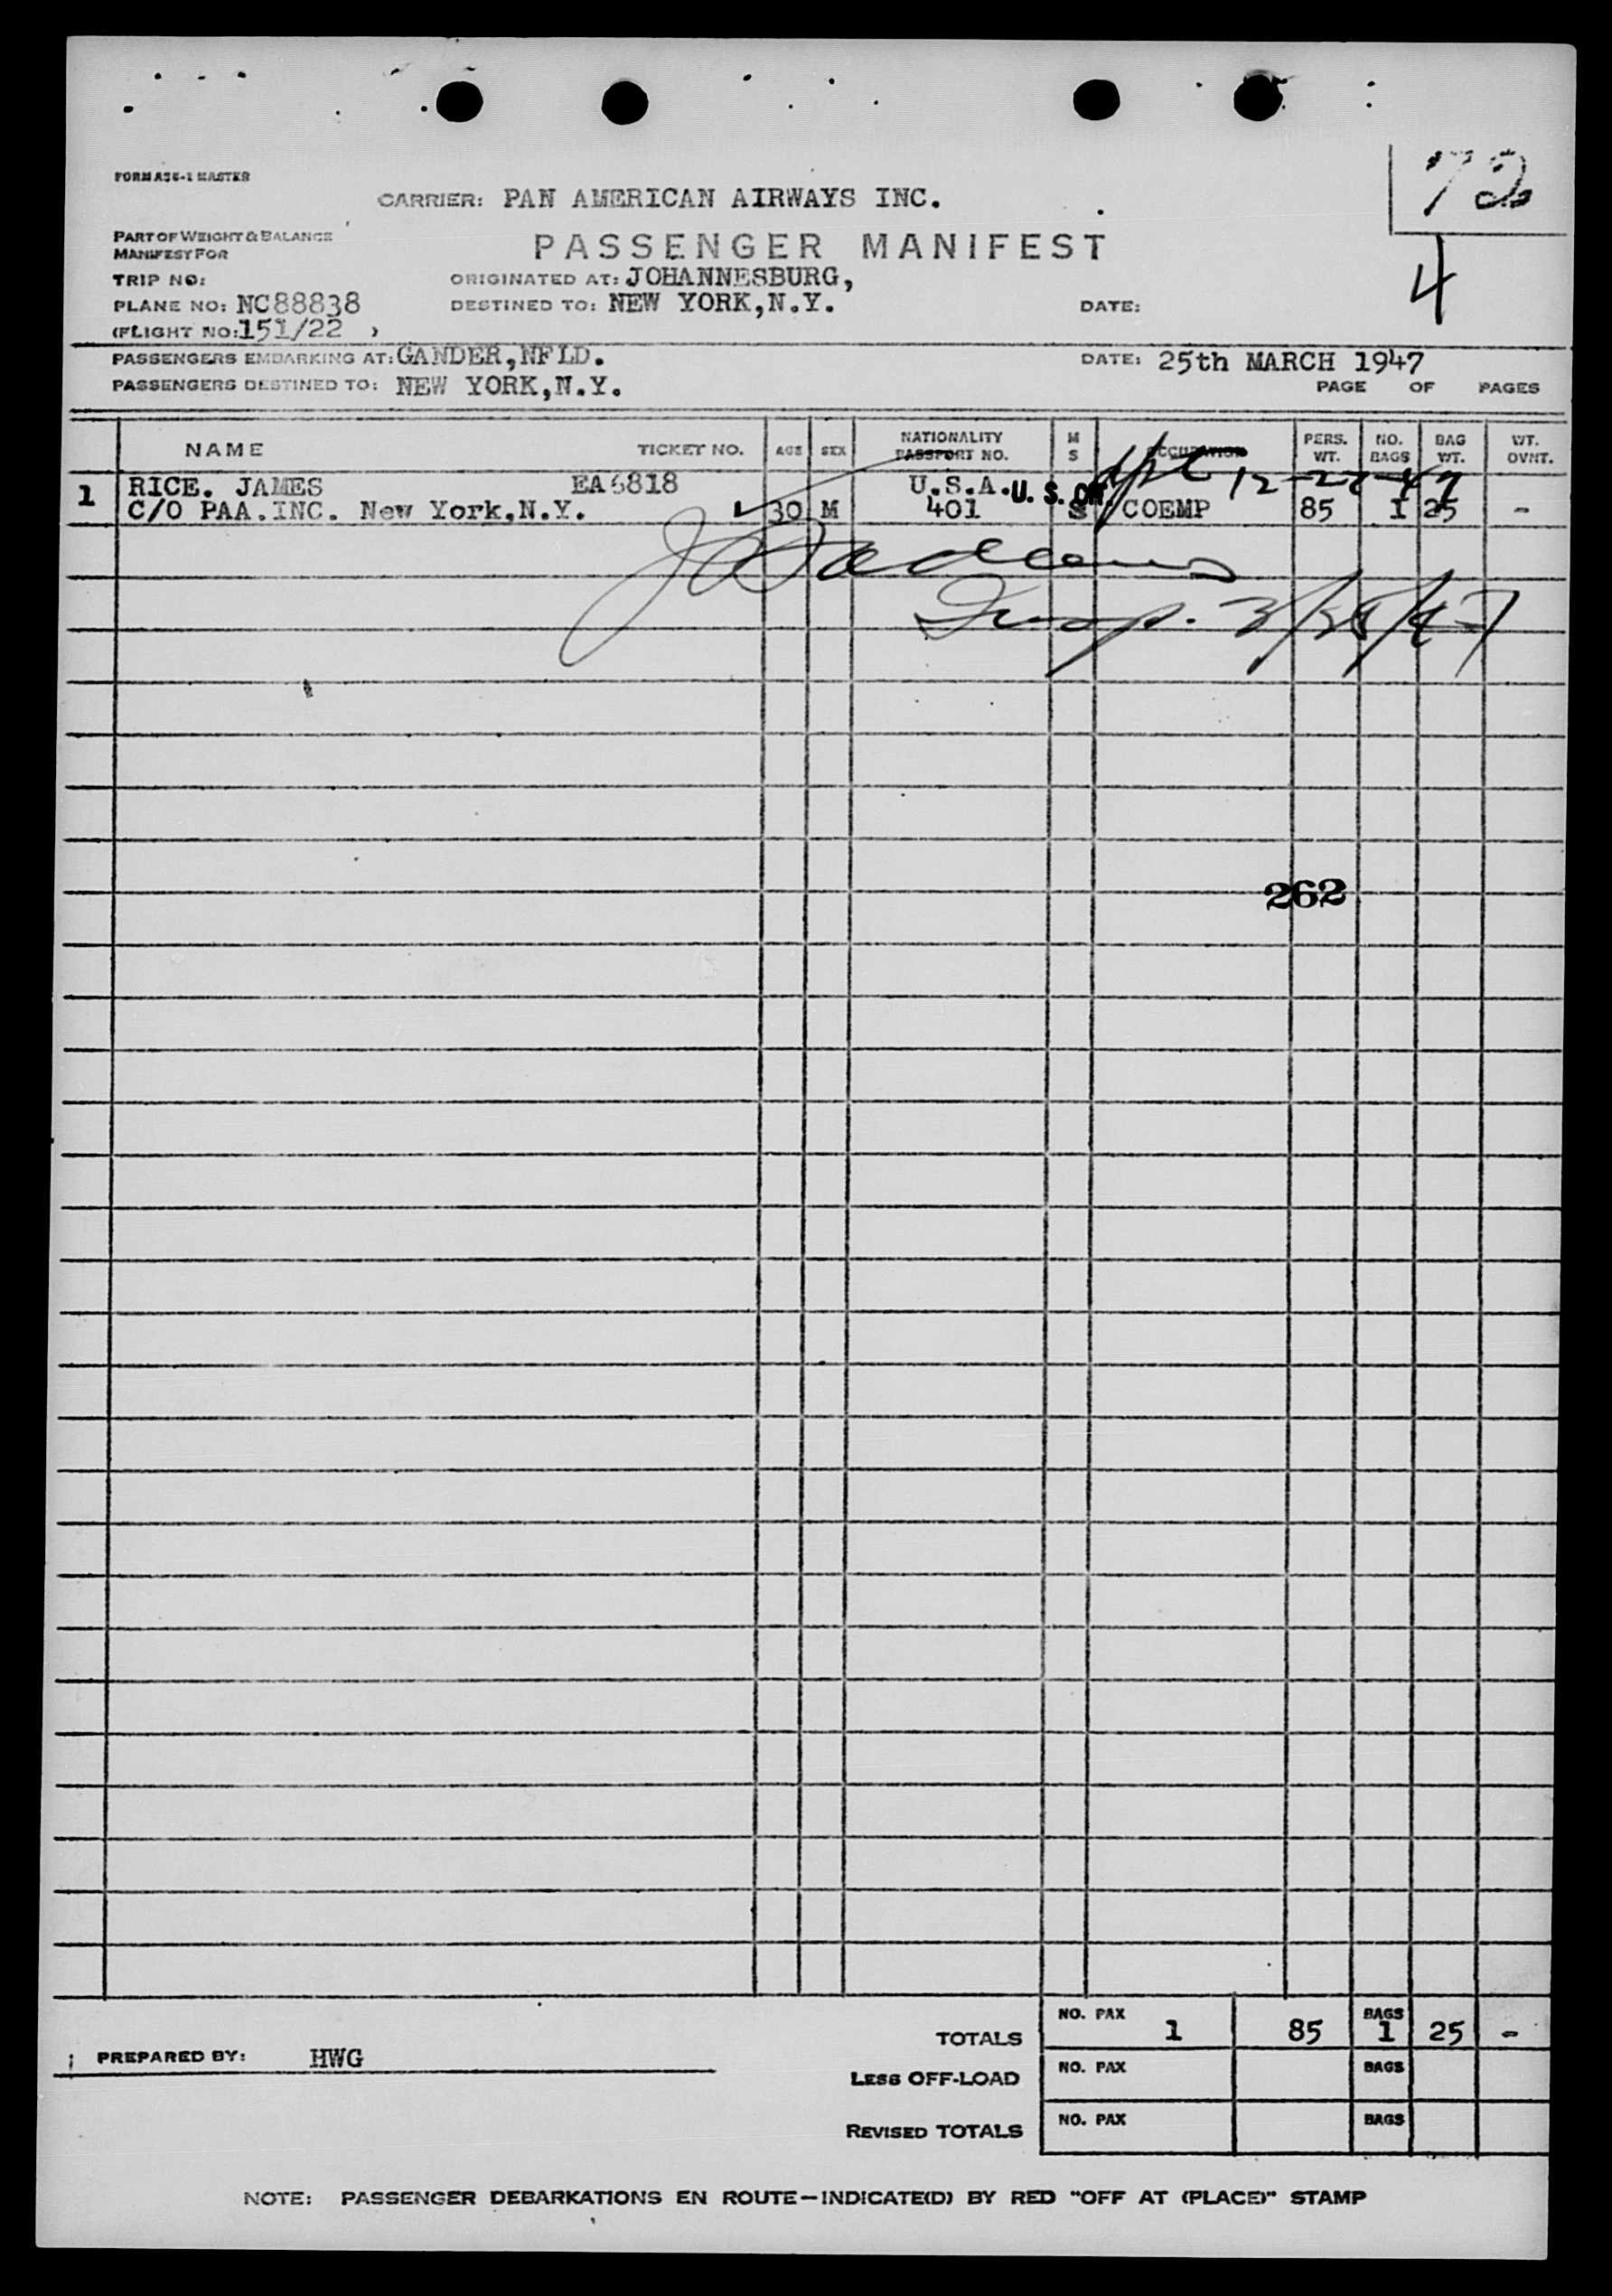 72
FORM A36-1 MASTER
CARRIER: PAN AMERICAN AIRWAYS INC.
4
PART OF WEIGHT & BALANCE
MANIFEST FOR
PASSENGER MANIFEST
TRIP NO:
ORIGINATED AT: JOHANNESBURG,
PLANE NO: NC88838
DESTINED TO: NEW YORK,N.Y.
DATE:
(FLIGHT NO:151/22 )
PASSENGERS EMBARKING AT: GANDER,NFLD.
DATE: 25th MARCH 1947
PASSENGERS DESTINED TO: NEW YORK,N.Y.
PAGE OF PAGES
NAME TICKET NO. AGE SEX NATIONALITY PASSPORT NO. M S OCCUPATION PERS. WT. NO. BAGS BAG WT. WT. OVNT.
12-27-47
1 RICE. JAMES EA6818 U.S.A. U. S.
C/O PAA.INC. New York,N.Y. 30 M 401 S COEMP 85 1 25 -
Insp. 3/25/47
262
TOTALS NO. PAX 1 85 BAGS 1 25 -
PREPARED BY: HWG
LESS OFF-LOAD NO. PAX BAGS
REVISED TOTALS NO. PAX BAGS
NOTE: PASSENGER DEBARKATIONS EN ROUTE—INDICATE(D) BY RED "OFF AT (PLACE)" STAMP